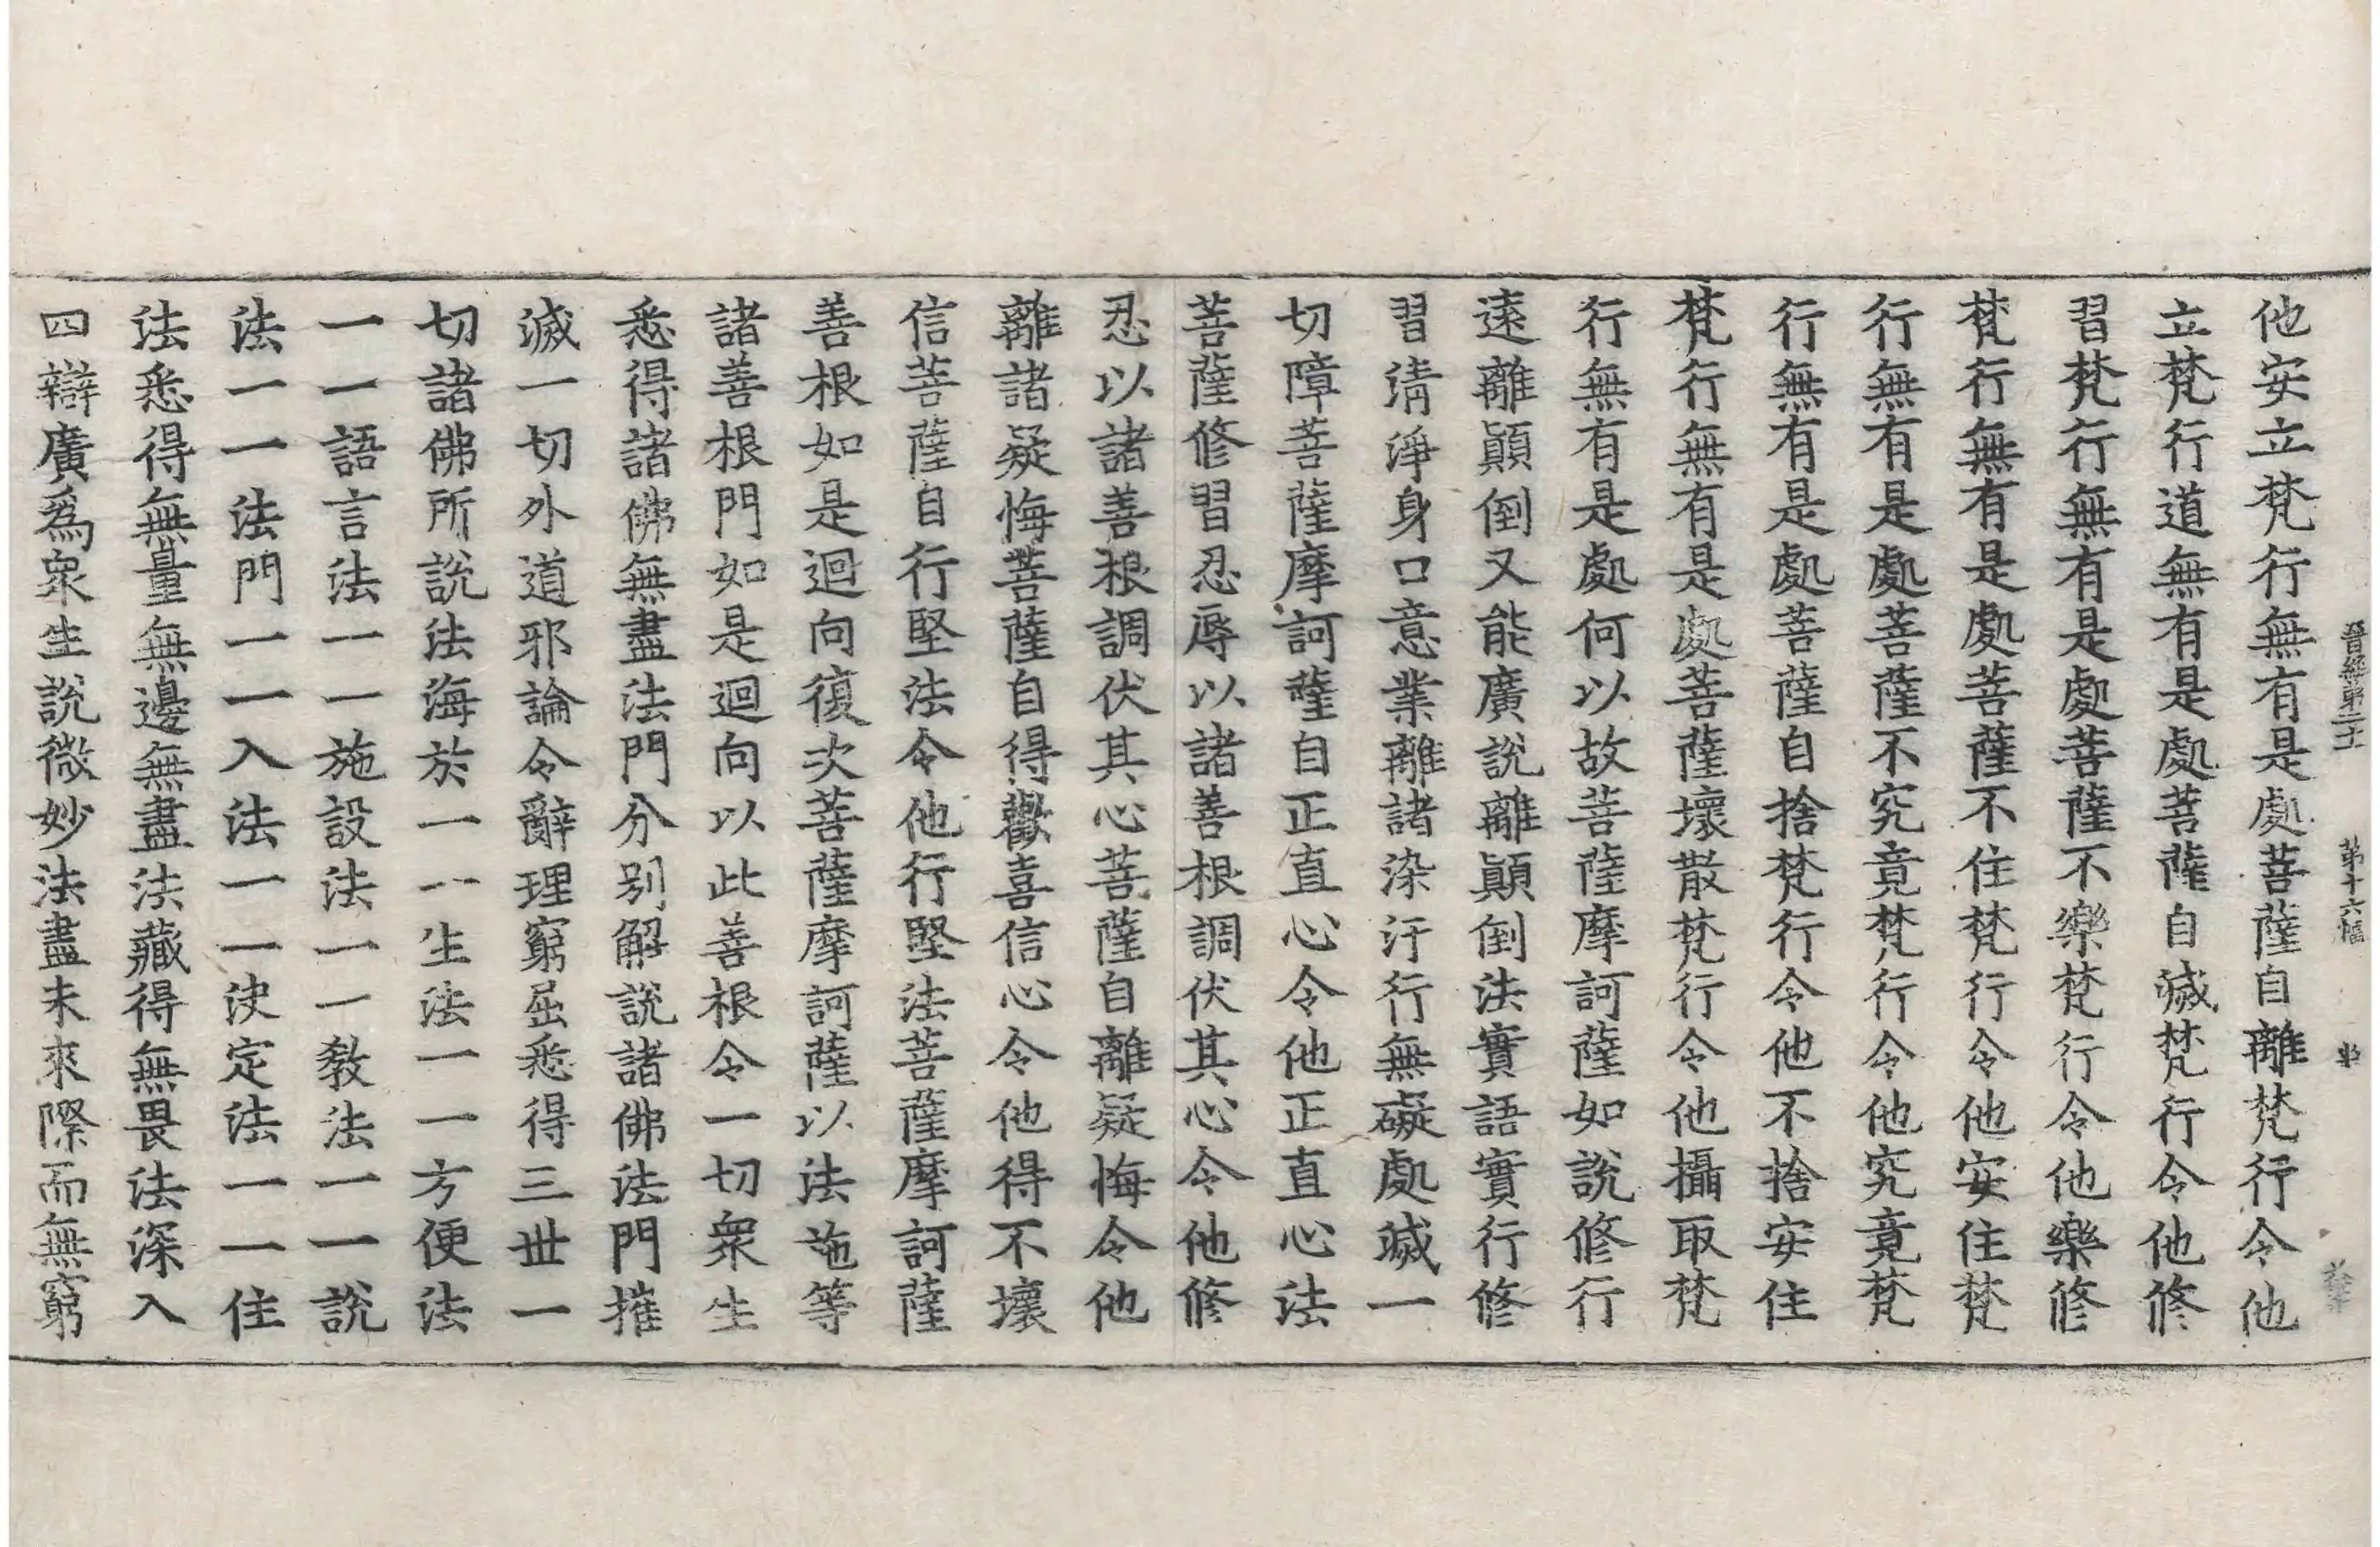 晋經第二十二 第十六幅
他安立梵行無有是處菩薩自離梵行令他
立梵行道無有是處菩薩自滅梵行令他修
習梵行無有是處菩薩不樂梵行令他樂修
梵行無有是處菩薩不住梵行令他安住梵
行無有是處菩薩不究竟梵行令他究竟梵
行無有是處菩薩自捨梵行令他不捨安住
梵行無有是處菩薩壞散梵行令他攝取梵
行無有是處何以故菩薩摩訶薩如說修行
遠離顛倒又能廣說離顛倒法實語實行修
習淸淨身口意業離諸染汙行無礙處滅一
切障菩薩摩訶薩自正直心令他正直心法
菩薩修習忍辱以諸善根調伏其心令他修
忍以諸善根調伏其心菩薩自離疑悔令他
離諸疑悔菩薩自得歡喜信心令他得不壞
信菩薩自行堅法令他行堅法菩薩摩訶薩
善根如是迴向復次菩薩摩訶薩以法施等
諸善根門如是迴向以此善根令一切衆生
悉得諸佛無盡法門分別解說諸佛法門摧
滅一切外道邪論令辭理窮屈悉得三世一
切諸佛所說法海於一一生法一一方便法
一一語言法一一施設法一一敎法一一說
法一一法門一一入法一一決定法一一住
法悉得無量無邊無盡法藏得無畏法深入
四辯廣爲衆生說微妙法盡未來際而無窮